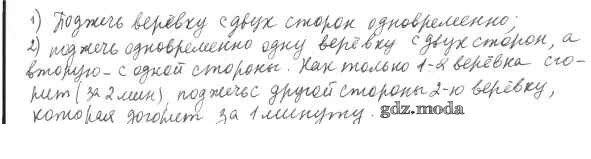 1) Поджечь верёвку с двух сторон одновременно;
2) поджечь одновременно одну верёвку с двух сторон, а
вторую - с одной стороны. Как только 1-я верёвка сго-
рит (за 2 мин), поджечь с другой стороны 2-ю верёвку,
которая догорит за 1 минуту.
gdz.moda